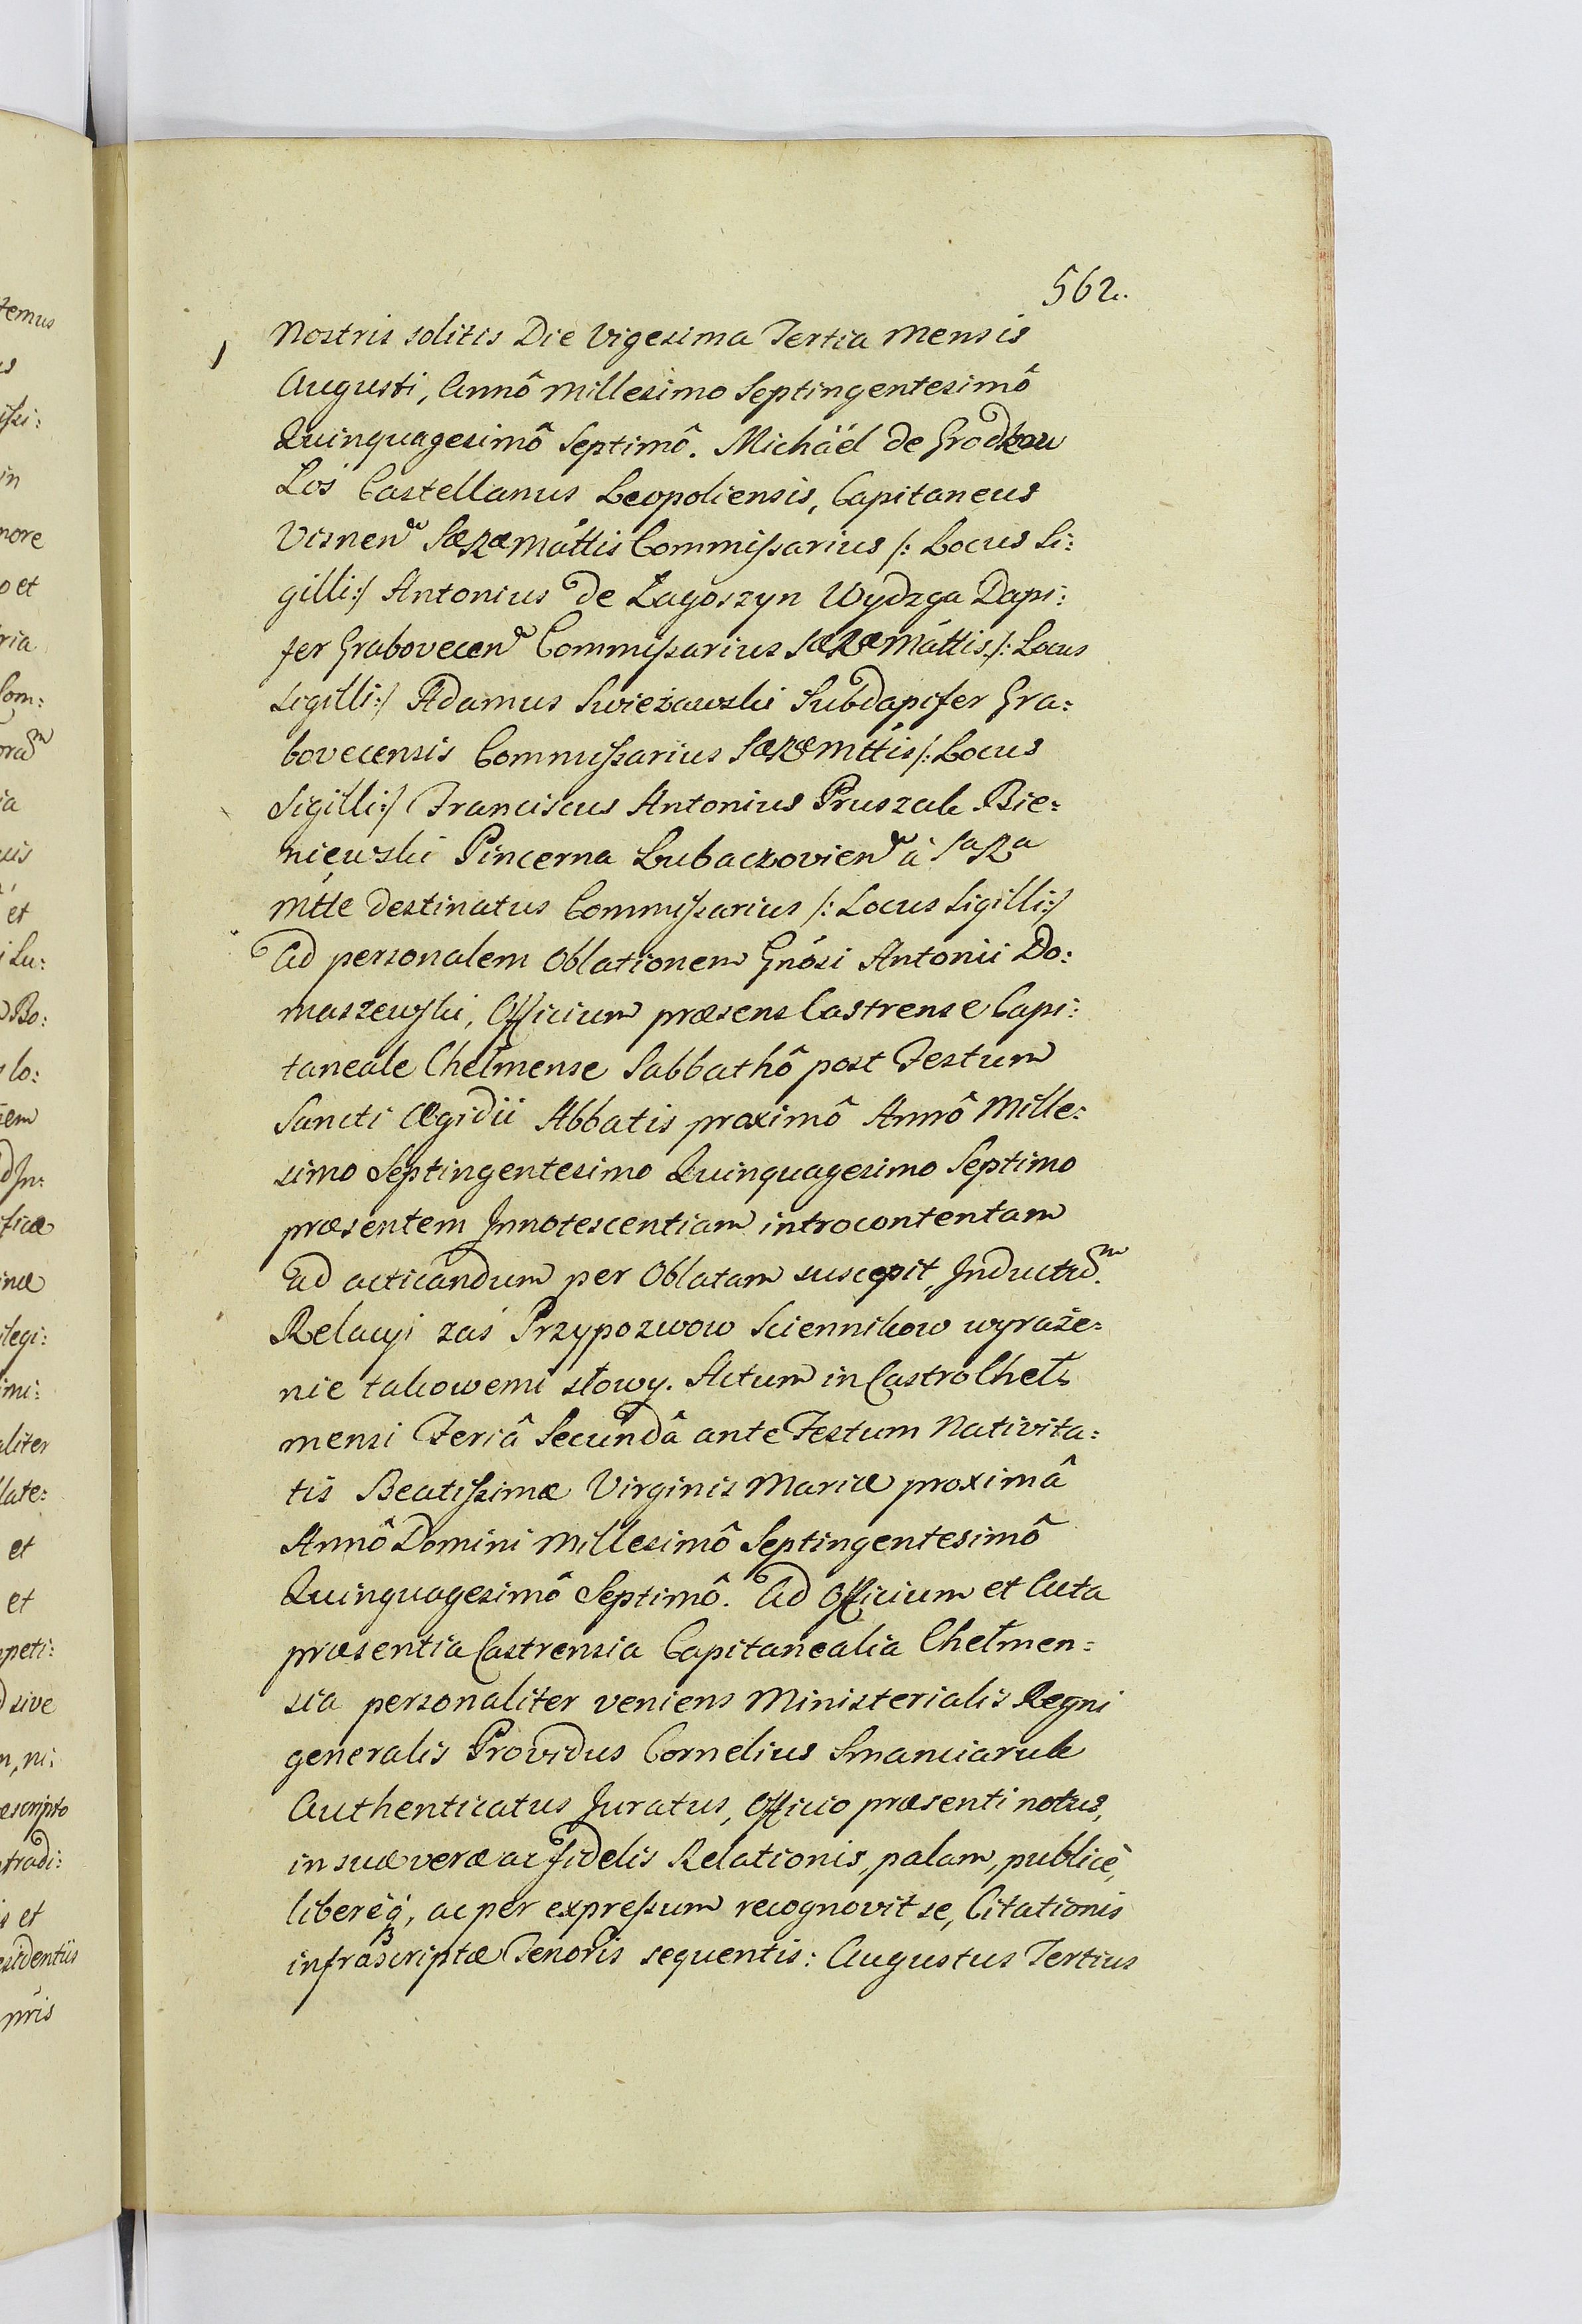 562.
Nostris solitis Die Vigesima Tertia Mensis
Augusti, Annô Millesimo Septingentesimô
Quinquagesimô Septimô. Michäél de Grodkow
Łoś Castellanus Leopoliensis, Capitaneus
Visnen Sæ Ræ Máttis Commissarius /: Locus Si:
gilli:/ Antonius de Łagoszyn Wydzga Dapi:
fer Grabovecen Commissarius Sæ Ræ Máttis /: Locus
Sigilli:/ Adamus Swieżawski Subdapifer Gra:
bovecensis Commissarius Sæ Ræ Mttis /: Locus
Sigilli:/ Franciscus Antonius Pruszak Bie:
niewski Pincerna Lubaczovien à Sa Ra
Mtte destinatus Commissarius /: Locus Sigilli:/
Ad personalem Oblationem Gnósi Antonii Do:
maszewski, Officium præsens Castrense Capi:
taneale Chełmense Sabbathô post Festum
Sancti Ægidii Abbatis proximô Annô Mille:
simo Septingentesimo Quinquagesimo Septimo
præsentem Innotescentiam introcontentam
ad acticandum per Oblatam suscepit, Inductam.
Relacyi zaś Przypozwow Sciennikow wyraże:
nie takowemi słowy. Actum in Castro Cheł:
mensi Feriâ Secundâ ante Festum Nativita:
tis Beatissimæ Virginis Mariæ proximâ
Annô Domini Millesimô Septingentesimô
Quinquagesimô Septimô. Ad Officium et Acta
præsentia Castrensia Capitanealia Chełmen:
sia personaliter veniens Ministerialis Regni
generalis Providus Cornelius Smanciaruk
Authenticatus Juratus, Officio præsenti notus,
in suæ veræ ac fidelis Relationis, palam, publicè,
liberèq́, ac per expressum recognovit se, Citationis
infrascriptæ Tenoris sequentis: Augustus Tertius